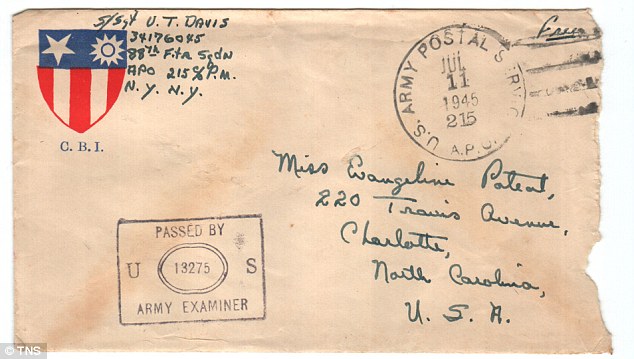 S/Sgt U. T. DAVIS
34176045
88th Ftr Sqdn
APO 215 c/o P.M.
N. Y. N.Y.
Free
C. B. I.
U.S. ARMY POSTAL SERVICE
JUL
11
1945
215
A.P.O.
Miss Evangeline Poteat,
220 Travis Avenue,
Charlotte,
North Carolina,
U. S. A.
PASSED BY
U 13275 S
ARMY EXAMINER
© TNS